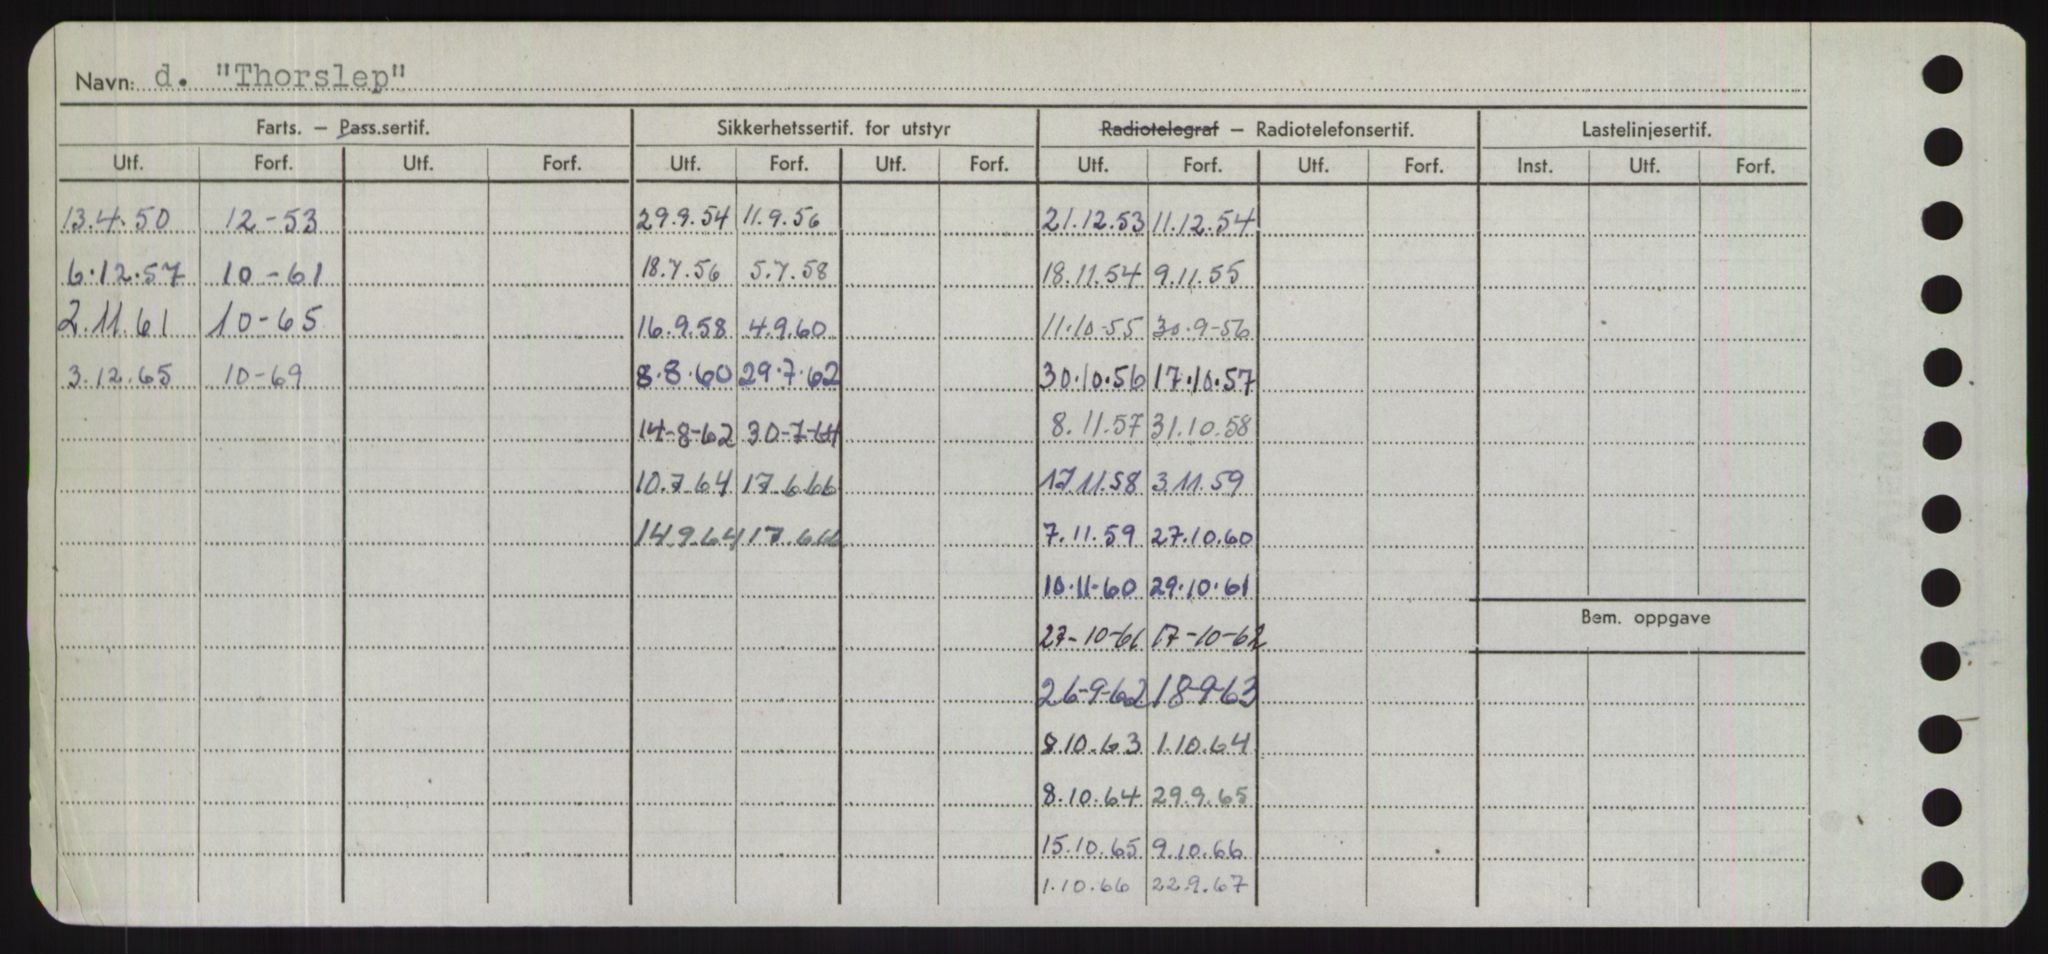 Navn: d. "Thorslep"
Farts. – Pass.sertif. Sikkerhetssertif. for utstyr Radiotelegraf – Radiotelefonsertif. Lastelinjesertif.
Utf. Forf. Utf. Forf. Utf. Forf. Utf. Forf. Utf. Forf. Utf. Forf. Inst. Utf. Forf.
13.4.50 12-53 29.9.54 11.9.56 21.12.53 11.12.54
6.12.57 10-61 18.7.56 5.7.58 18.11.54 9.11.55
2.11.61 10-65 16.9.58 4.9.60 11.10-55 30.9-56
3.12.65 10-69 8.8.60 29.7.62 30.10.56 17.10.57
14-8-62 30-7-64 8.11.57 31.10.58
10.7.64 17.6.66 17.11.58 3.11.59
14.9.64 17.6.66 7.11.59 27.10.60
10.11-60 29.10.61
Bem. oppgave
27-10-61 17-10-62
26-9-62 18-9-63
8.10.63 1.10.64
8.10.64 29.9.65
15.10.65 9.10.66
1.10.66 22.9.67